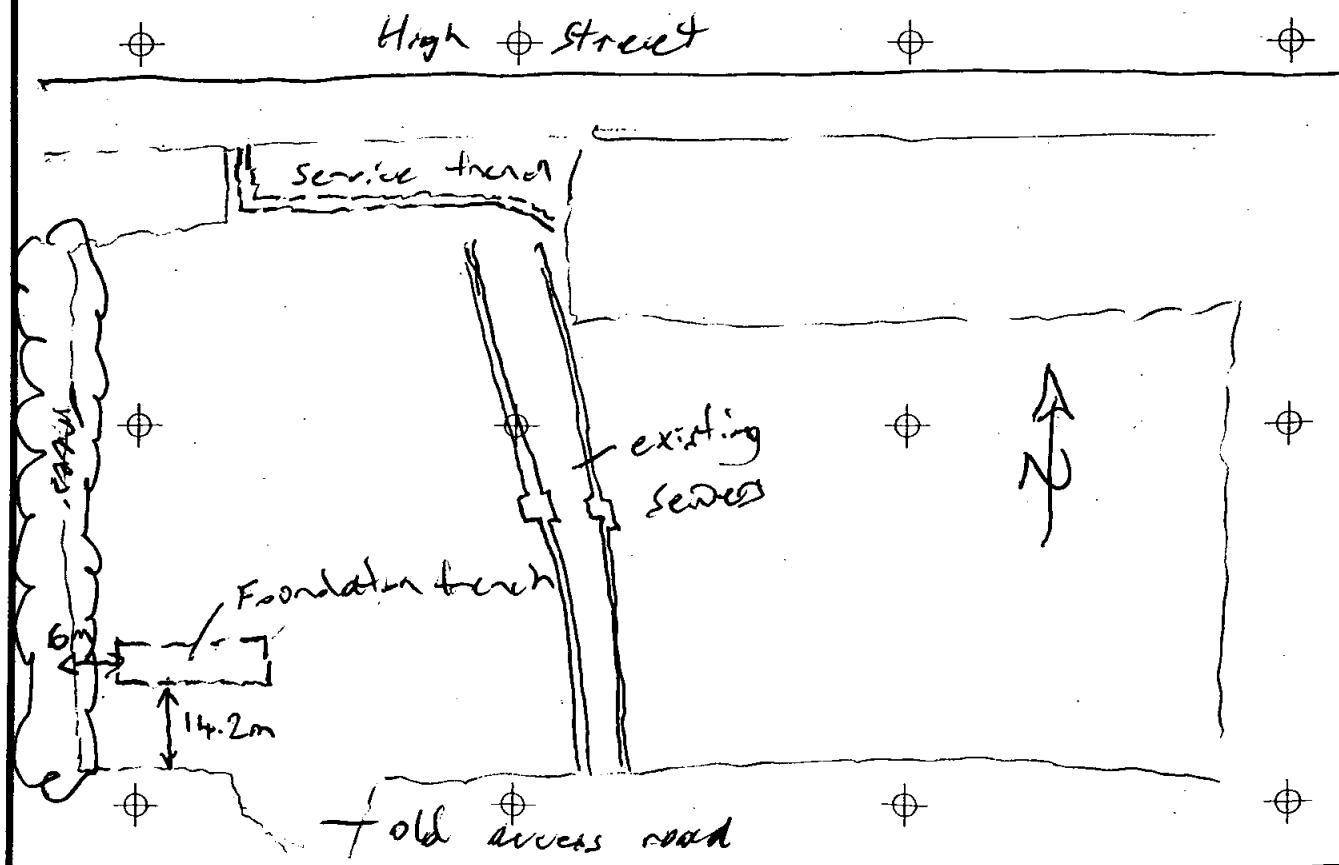 High Street
service trench
trees
existing
sewers
N
Foundation trench
6m
14.2m
old access road